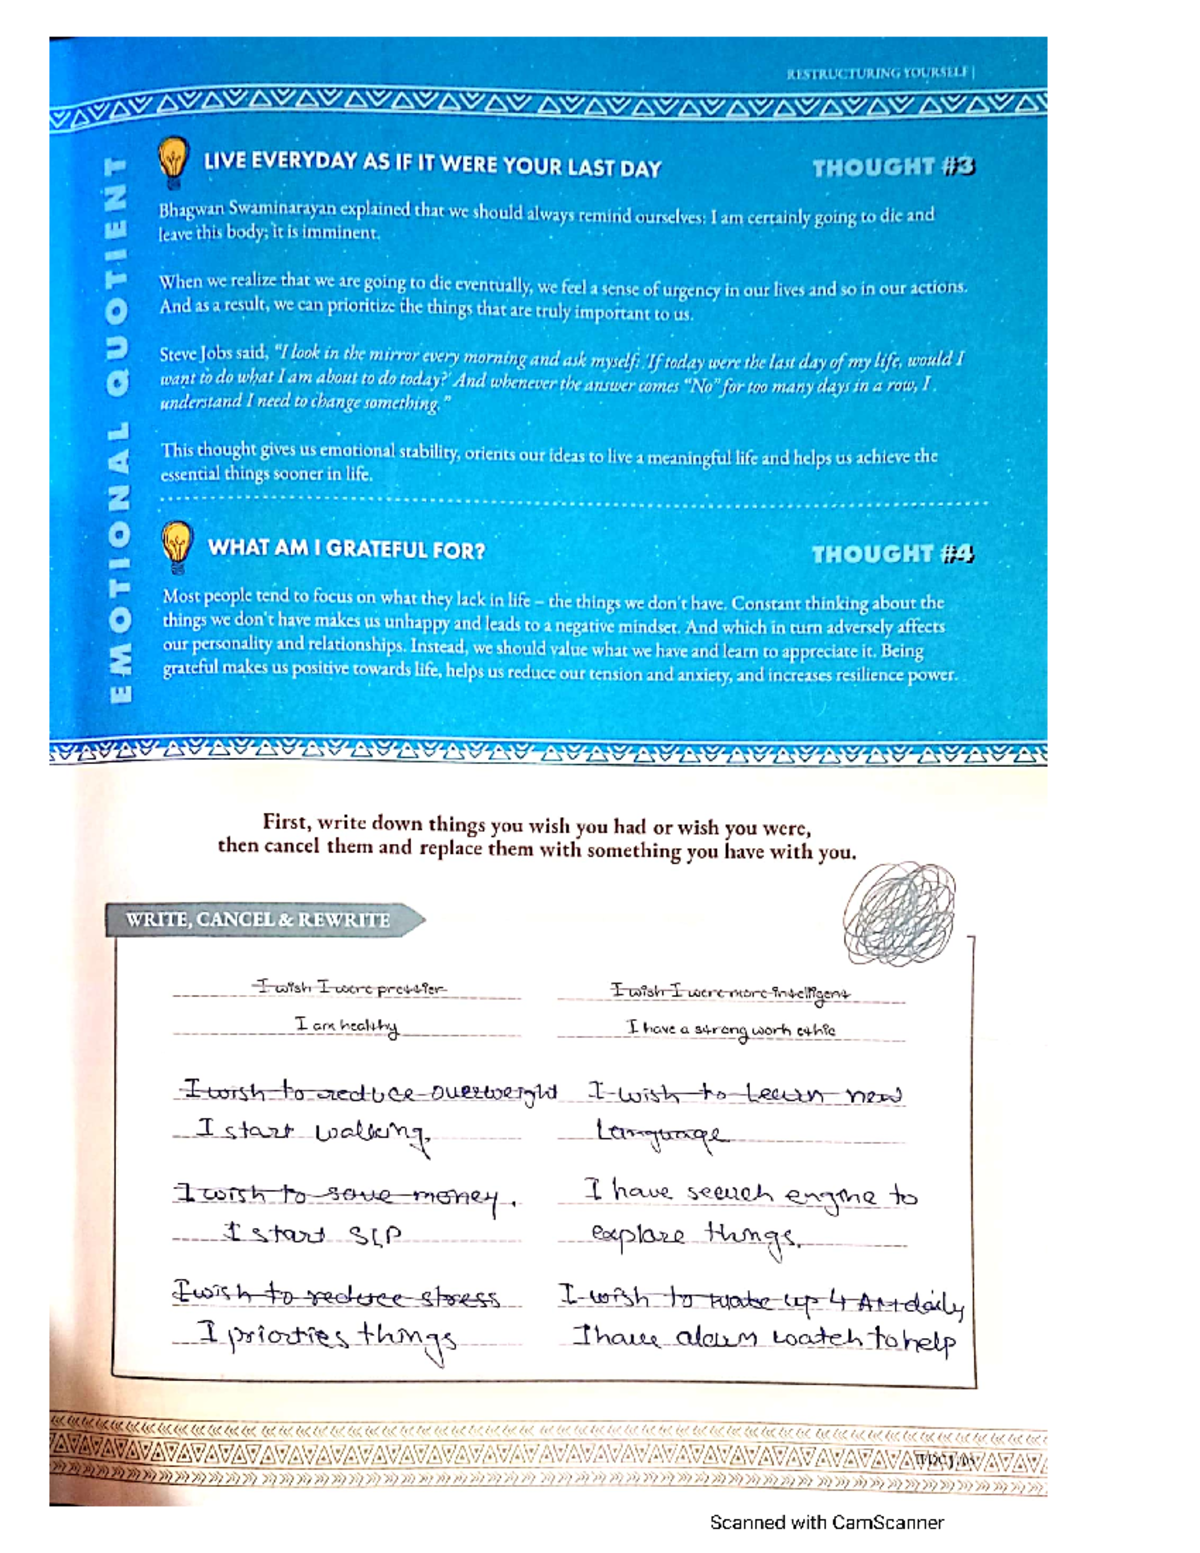 RESTRUCTURING YOURSELF |
EMOTIONAL QUOTIENT
LIVE EVERYDAY AS IF IT WERE YOUR LAST DAY
THOUGHT #3
Bhagwan Swaminarayan explained that we should always remind ourselves: I am certainly going to die and
leave this body; it is imminent.
When we realize that we are going to die eventually, we feel a sense of urgency in our lives and so in our actions.
And as a result, we can prioritize the things that are truly important to us.
Steve Jobs said, "I look in the mirror every morning and ask myself: 'If today were the last day of my life, would I
want to do what I am about to do today?' And whenever the answer comes "No" for too many days in a row, I
understand I need to change something."
This thought gives us emotional stability, orients our ideas to live a meaningful life and helps us achieve the
essential things sooner in life.
WHAT AM I GRATEFUL FOR?
THOUGHT #4
Most people tend to focus on what they lack in life – the things we don't have. Constant thinking about the
things we don't have makes us unhappy and leads to a negative mindset. And which in turn adversely affects
our personality and relationships. Instead, we should value what we have and learn to appreciate it. Being
grateful makes us positive towards life, helps us reduce our tension and anxiety, and increases resilience power.
First, write down things you wish you had or wish you were,
then cancel them and replace them with something you have with you.
WRITE, CANCEL & REWRITE
I wish I were prettier
I am healthy
I wish I were more intelligent
I have a strong work ethic
I wish to reduce overweight
I start walking.
I wish to learn new
Language
I wish to save money.
I start SIP
I have search engine to
explore things.
I wish to reduce stress
I priorties things
I wish to wake up 4 AM daily
I have alarm watch to help
Scanned with CamScanner